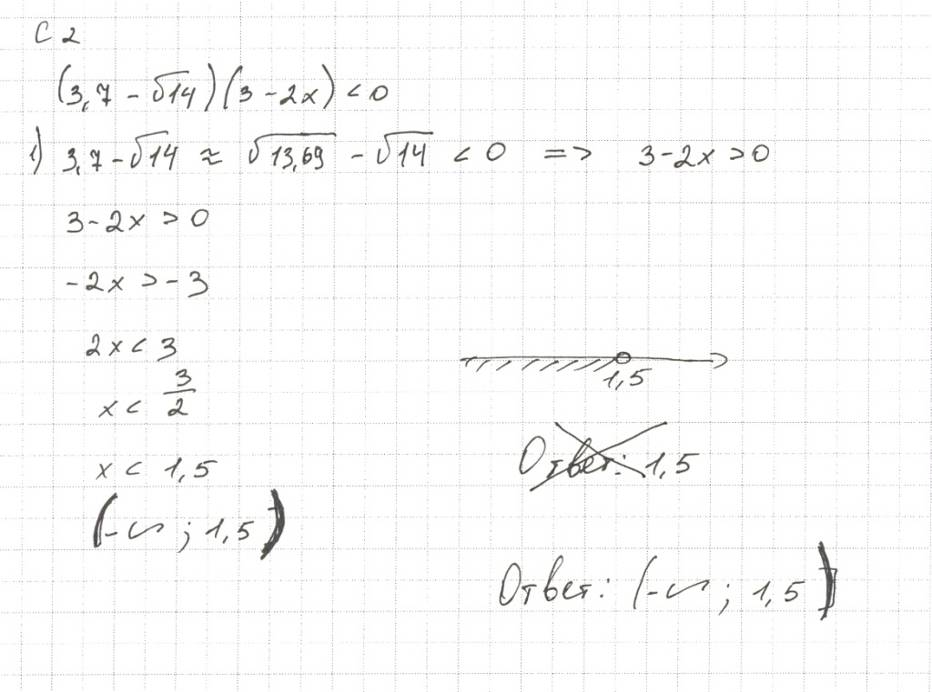 С 2
(3,7 - √14)(3 - 2x) < 0
1) 3,7 - √14 ≈ √13,69 - √14 < 0 => 3 - 2x > 0
3 - 2x > 0
-2x > -3
2x < 3
x < 3/2
1,5
x < 1,5
Ответ: 1,5
(-∞ ; 1,5)
Ответ: (-∞ ; 1,5)